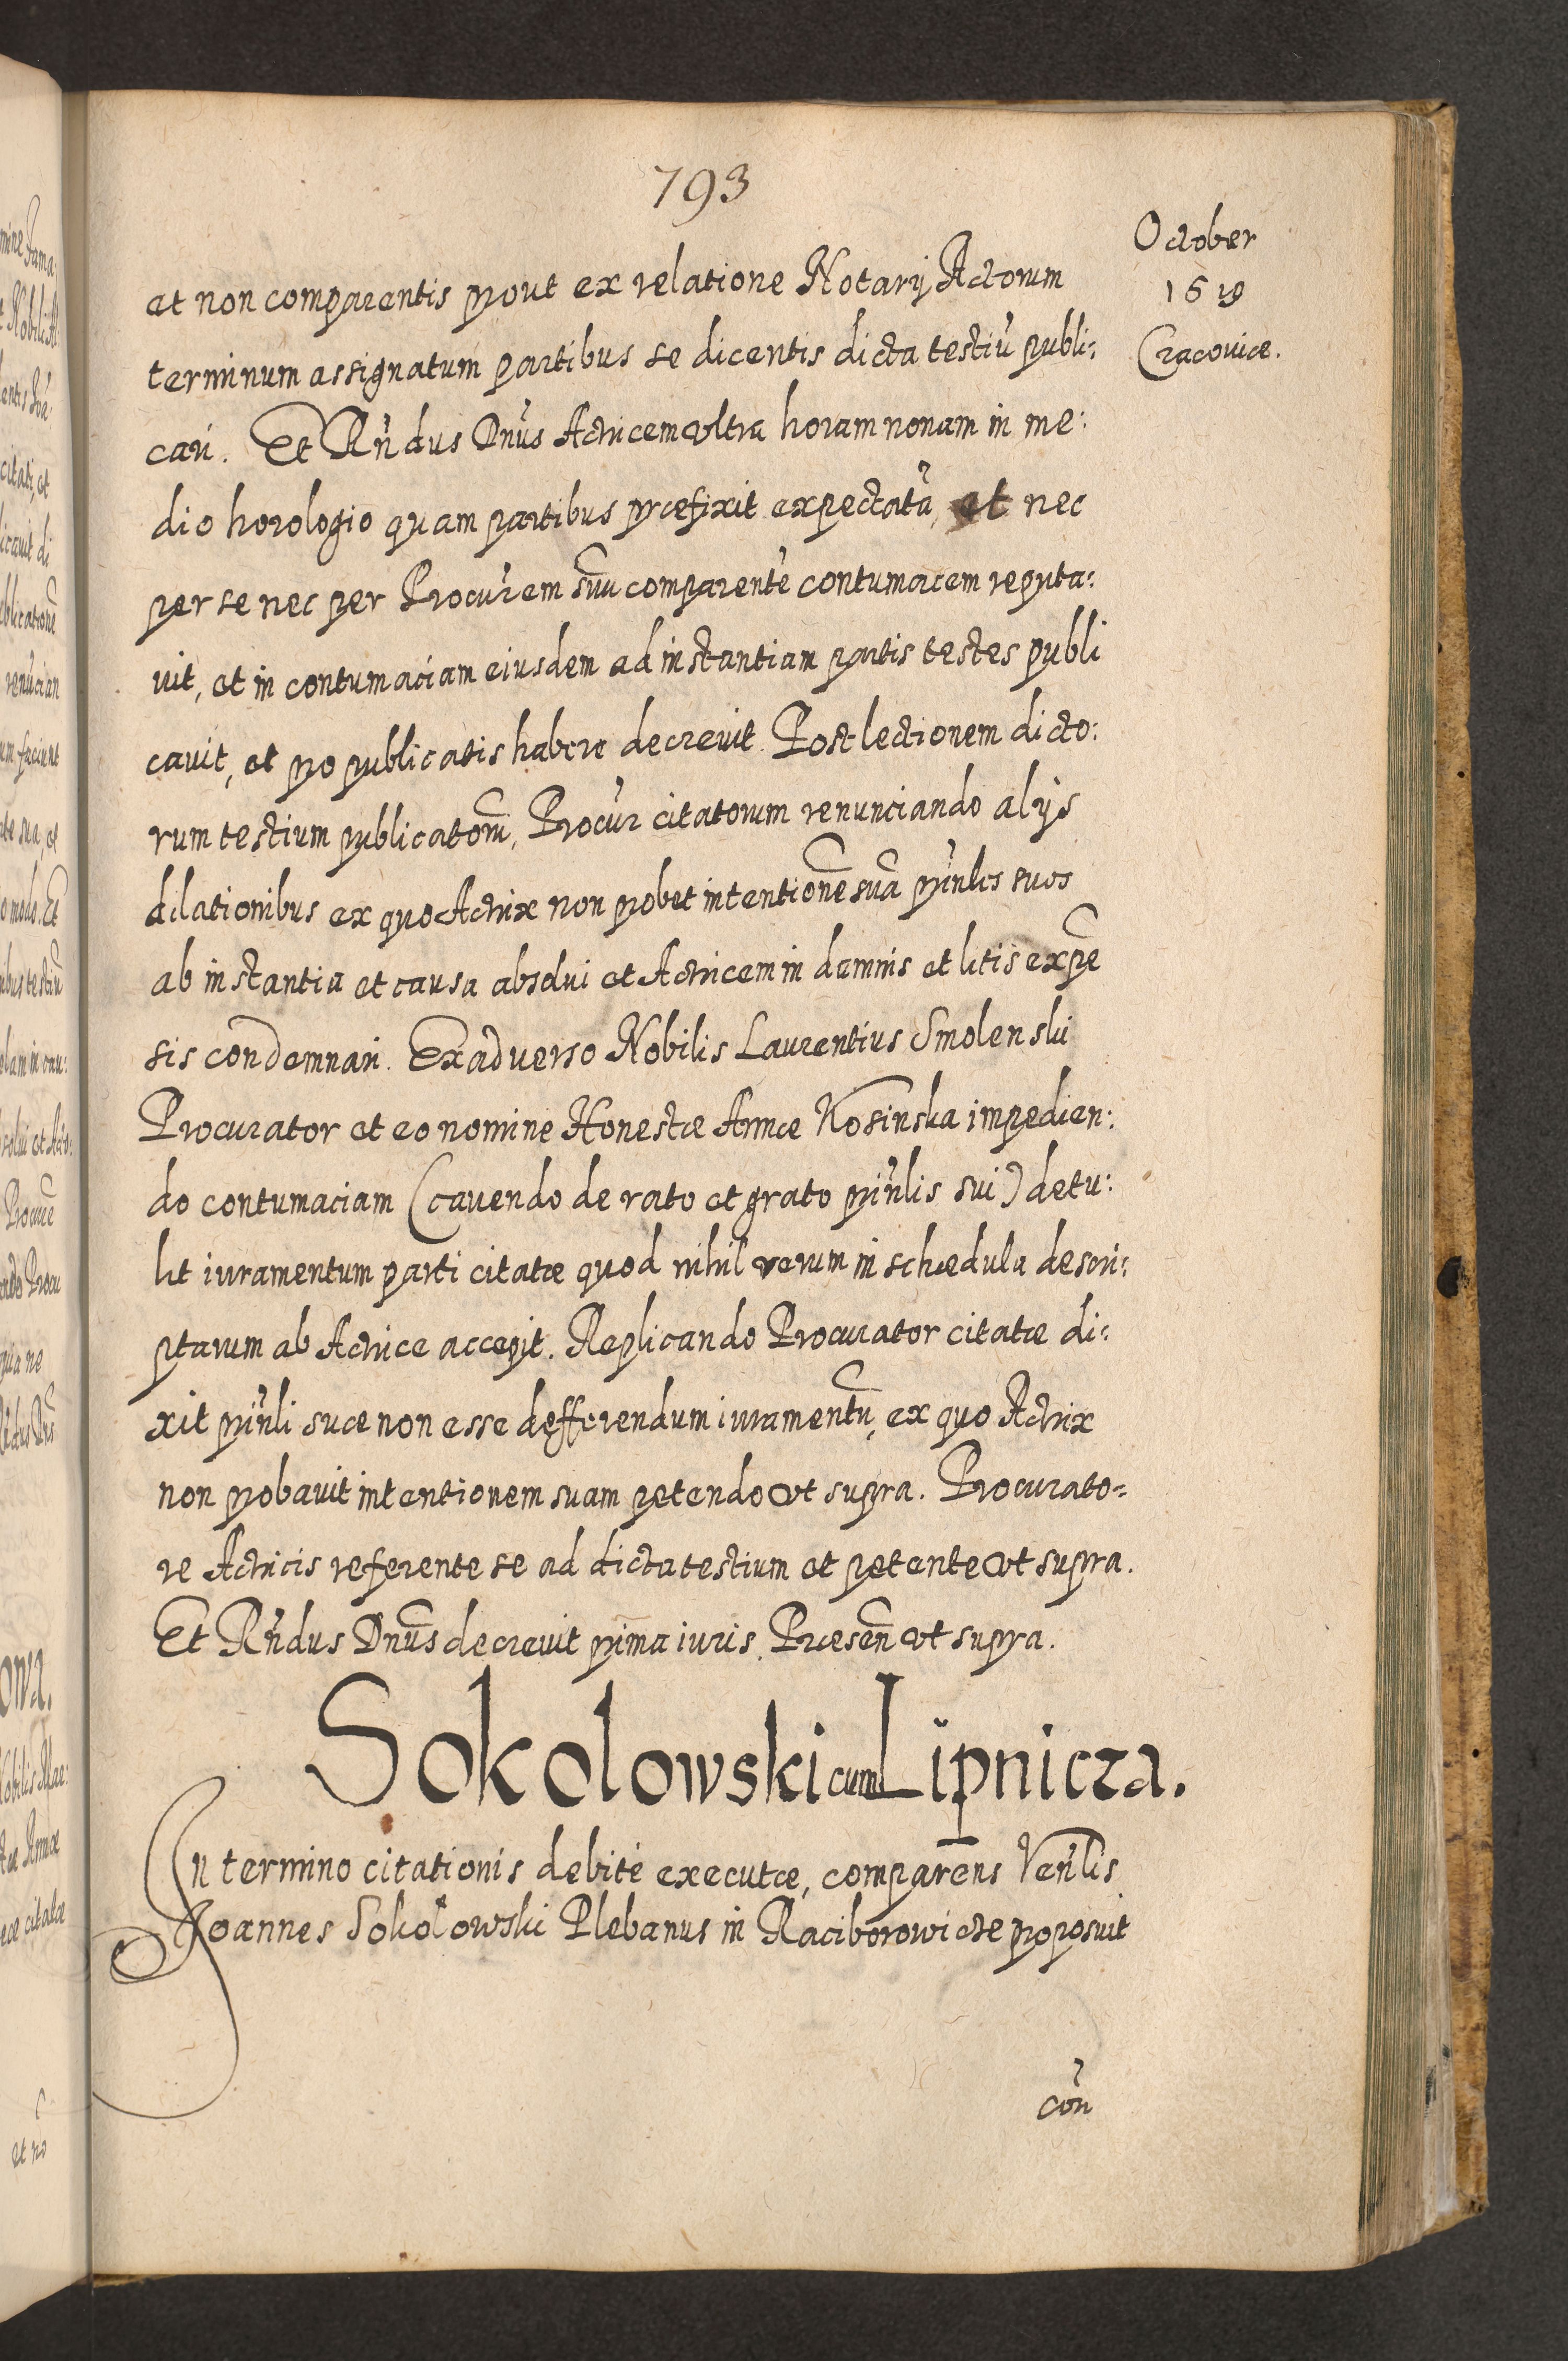 793
October
1619
Cracoviæ.
et non comparentis prout ex relatione Notarij Actorum
terminum assignatum partibus se dicentis dicta testiũ publi:
cari. Et Rñdus Dnũs Actricem ultra horam nonam in me:
dio horologio quam partibus præfixit expectatã, et nec
per se nec per Procũrem suũ comparentẽ contumacem reputa:
uit, et in contumaciam eiusdem ad instantiam partis testes publi
cauit, et pro publicatis habere decreuit. Post lectionem dicto:
rum testium publicatorũ, Procũr citatorum renunciando alijs
dilationibus ex quo Actrix non probet intentionẽ suã prinl̃es suos
ab instantia et causa absolui et Actricem in damnis et litis expẽ
sis condemnari. Ex aduerso Nobilis Laurentius Smolenski
Procurator et eo nomine Honestæ Annæ Kosinska impedien:
do contumaciam (cauendo de rato et grato prinl̃is sui) detu:
lit iuramentum parti citatæ quod nihil rerum in schædula descri:
ptarum ab Actrice accepit. Replicando Procurator citatæ di:
xit prinl̃i suæ non esse defferendum iuramentũ, ex quo Actrix
non probauit intentionem suam petendo ut supra. Procurato=
re Actricis referente se ad dicta testium et petente ut supra.
Et Rñdus Dnũs decreuit prima iuris. Præseñ ut supra.
Sokolowski cum Lipnicza.
In termino citationis debite executæ, comparens Venl̃is
Joannes Sokolowski Plebanus in Raciborowicze proposuit
coñ